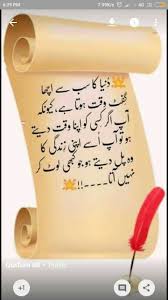 6:29 PM
دُنیا کا سب سے اچھا
گفٹ وقت ہوتا ہے، کیونکہ
آپ اگر کسی کو اپنا وقت دیتے
ہو تو آپ اُسے اپنی زندگی کا
وہ پل دیتے ہو جو کبھی لوٹ کر
نہیں آتا۔۔۔۔!!